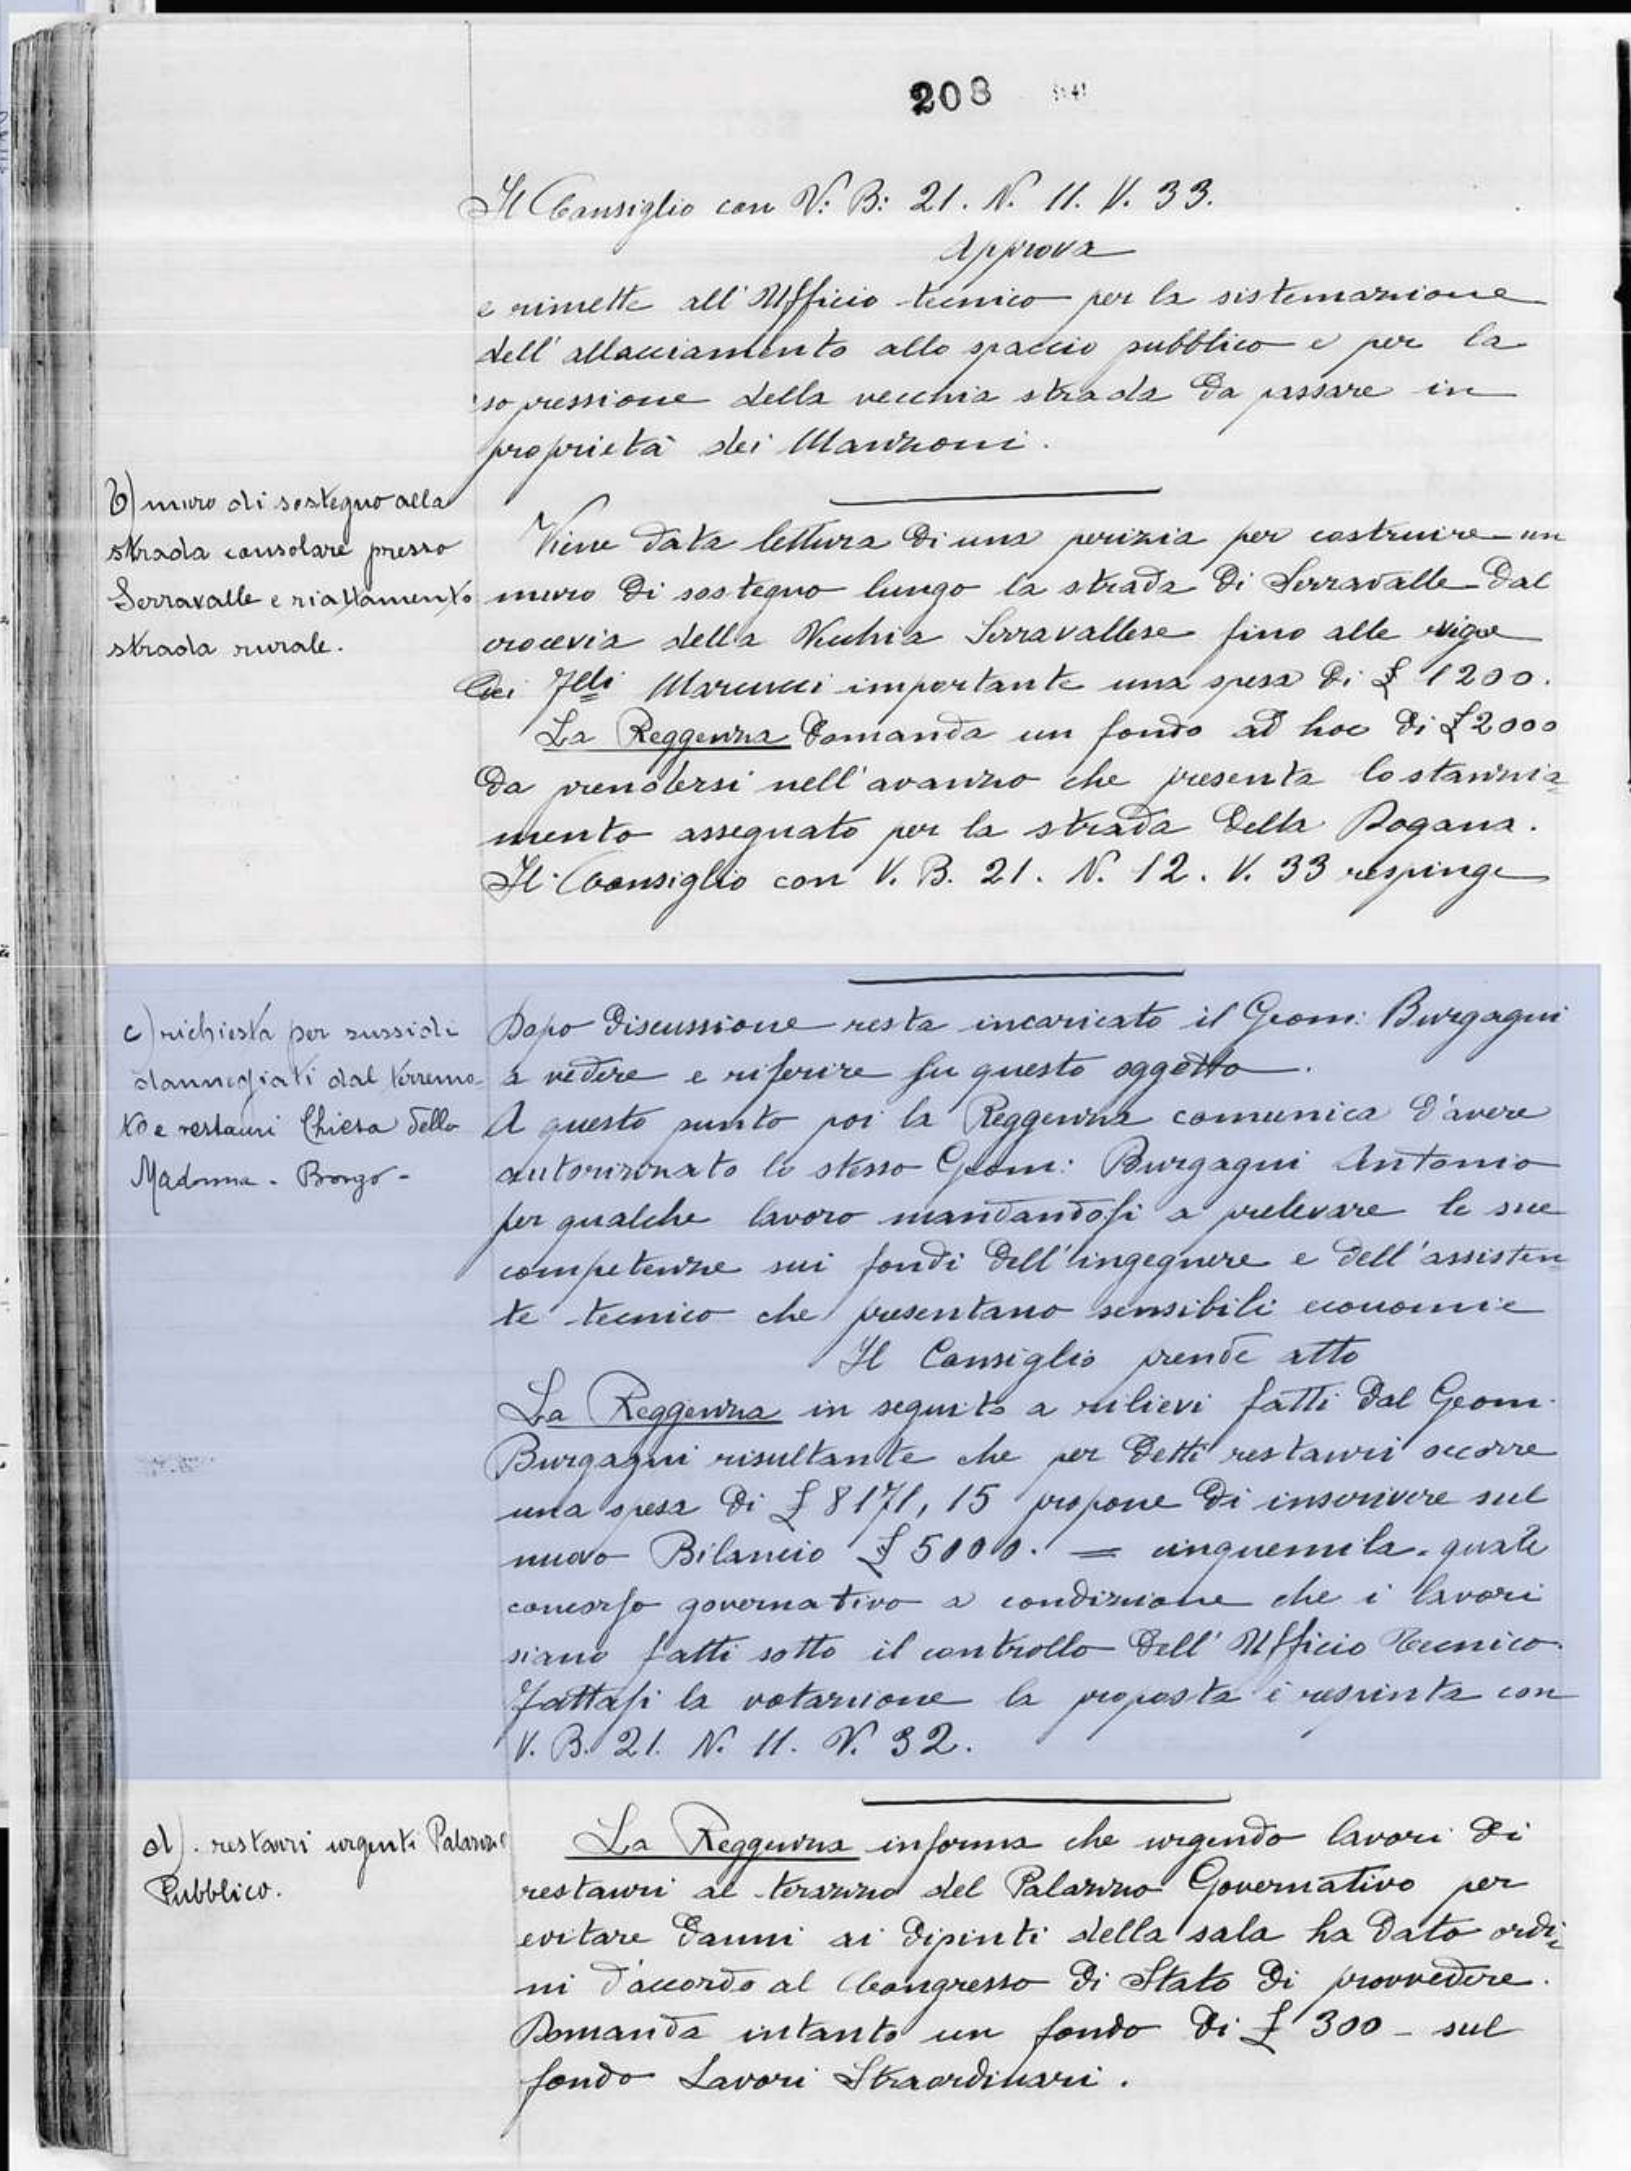 208
Il Consiglio con V: B: 21. N. 11. V. 33.
Approva
e rimette all'Ufficio tecnico per la sistemazione
dell'allacciamento allo spaccio pubblico e per la
sopressione della vecchia strada da passare in
proprietà dei Manzoni.
b) muro di sostegno alla
strada consolare presso
Serravalle e riattamento
strada rurale.
Viene data lettura di una perizia per costruire un
muro di sostegno lungo la strada di Serravalle dal
crocevia della Vecchia Serravallese fino alle vigne
dei Flli Marcucci importante una spesa di £ 1200.
La Reggenza domanda un fondo ad hoc di £ 2000
da prendersi nell'avanzo che presenta lo stanzia=
mento assegnato per la strada della Dogana.
Il Consiglio con V. B. 21. N. 12. V. 33 respinge
c) richiesta per sussidi
dannegiati dal terremo-
to e restauri Chiesa della
Madonna - Borgo -
Dopo discussione resta incaricato il Geom: Burgagni
a vedere e riferire su questo oggetto.
A questo punto poi la Reggenza comunica d'avere
autorizzato lo stesso Geom: Burgagni Antonio
per qualche lavoro mandandosi a prelevare le sue
competenze sui fondi dell'ingegnere e dell'assisten
te tecnico che presentano sensibili economie
Il Consiglio prende atto
La Reggenza in seguito a rilievi fatti dal Geom.
Burgagni risultante che per detti restauri occorre
una spesa di £ 8171,15 propone di inscrivere sul
nuovo Bilancio £ 5000. = cinquemila - quale
concorso governativo a condizione che i lavori
siano fatti sotto il controllo dell'Ufficio Tecnico.
Fattasi la votazione la proposta è respinta con
V. B. 21. N. 11. V. 32.
d). restauri urgenti Palazzo
Pubblico.
La Reggenza informa che urgendo lavori di
restauri al terazzo del Palazzo Governativo per
evitare danni ai dipinti della sala ha dato ordi=
ni d'accordo al Congresso di Stato di provvedere.
Domanda intanto un fondo di £ 300 - sul
fondo Lavori Straordinari.